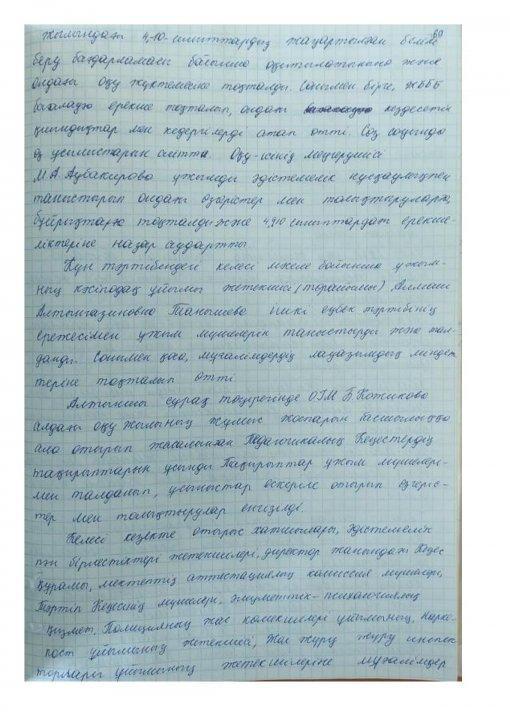 60
жылындағы 4,9,10-сыныптардың жаңартылған білім
беру бағдарламасы бойынша оқытылатынына және
алдағы оқу жүктемесіне тоқталды. Сонымен бірге, ЖББҰ
бағалауға ерекше тоқталып, ондағы кездесетін
қиындықтар мен кедергілерді атап өтті. Сөз соңында
өз ұсыныстарын айтты. Оқу-ісінің меңгерушісі
М.А. Аубакирова ұжымды әдістемелік нұсқаулықпен
таныстырып ондағы өзгерістер мен толықтыруларға,
бұйрықтарға тоқталды және 4,9,10 сыныптардағы ерекше-
ліктеріне назар аудартты.
Күн тәртібіндегі келесі мәселе бойынша ұжым-
ның кәсіподақ ұйымы жетекшісі (төрайымы)
Алтынгазиновна Танышева ішкі еңбек тәртібінің
ережесімен ұжым мүшелерін таныстырды және тал-
данды. Сонымен қоса, мұғалімдердің лауазымдық міндет-
теріне тоқталып өтті.
Алтыншы сұрақ төңірегінде ОІМ Б.Кошикова
алдағы оқу жылының жұмыс жоспарын басшылыққа
ала отырып жасалынған Педагогикалық Кеңестердің
тақырыптарын ұсынды. Тақырыптар ұжым мүшелері-
мен талданып, ұсыныстар ескеріле отырып өзгеріс-
тер мен толықтырулар енгізілді.
Келесі кезекте отырыс хатшылары, әдістемелік
пән бірлестіктері жетекшілері, директор жанындағы Кеңес
құрамы, мектептің аттестациялық комиссия мүшелері,
Тәртіп Кеңесінің мүшелері, әлеуметтік-психологиялық
қызмет, Полицияның жас көмекшілері ұйымының, Нарко-
пост ұйымының жетекшісі, Жас жүру жүру инспек-
торлары ұйымының жетекшілеріне мұғалімдер